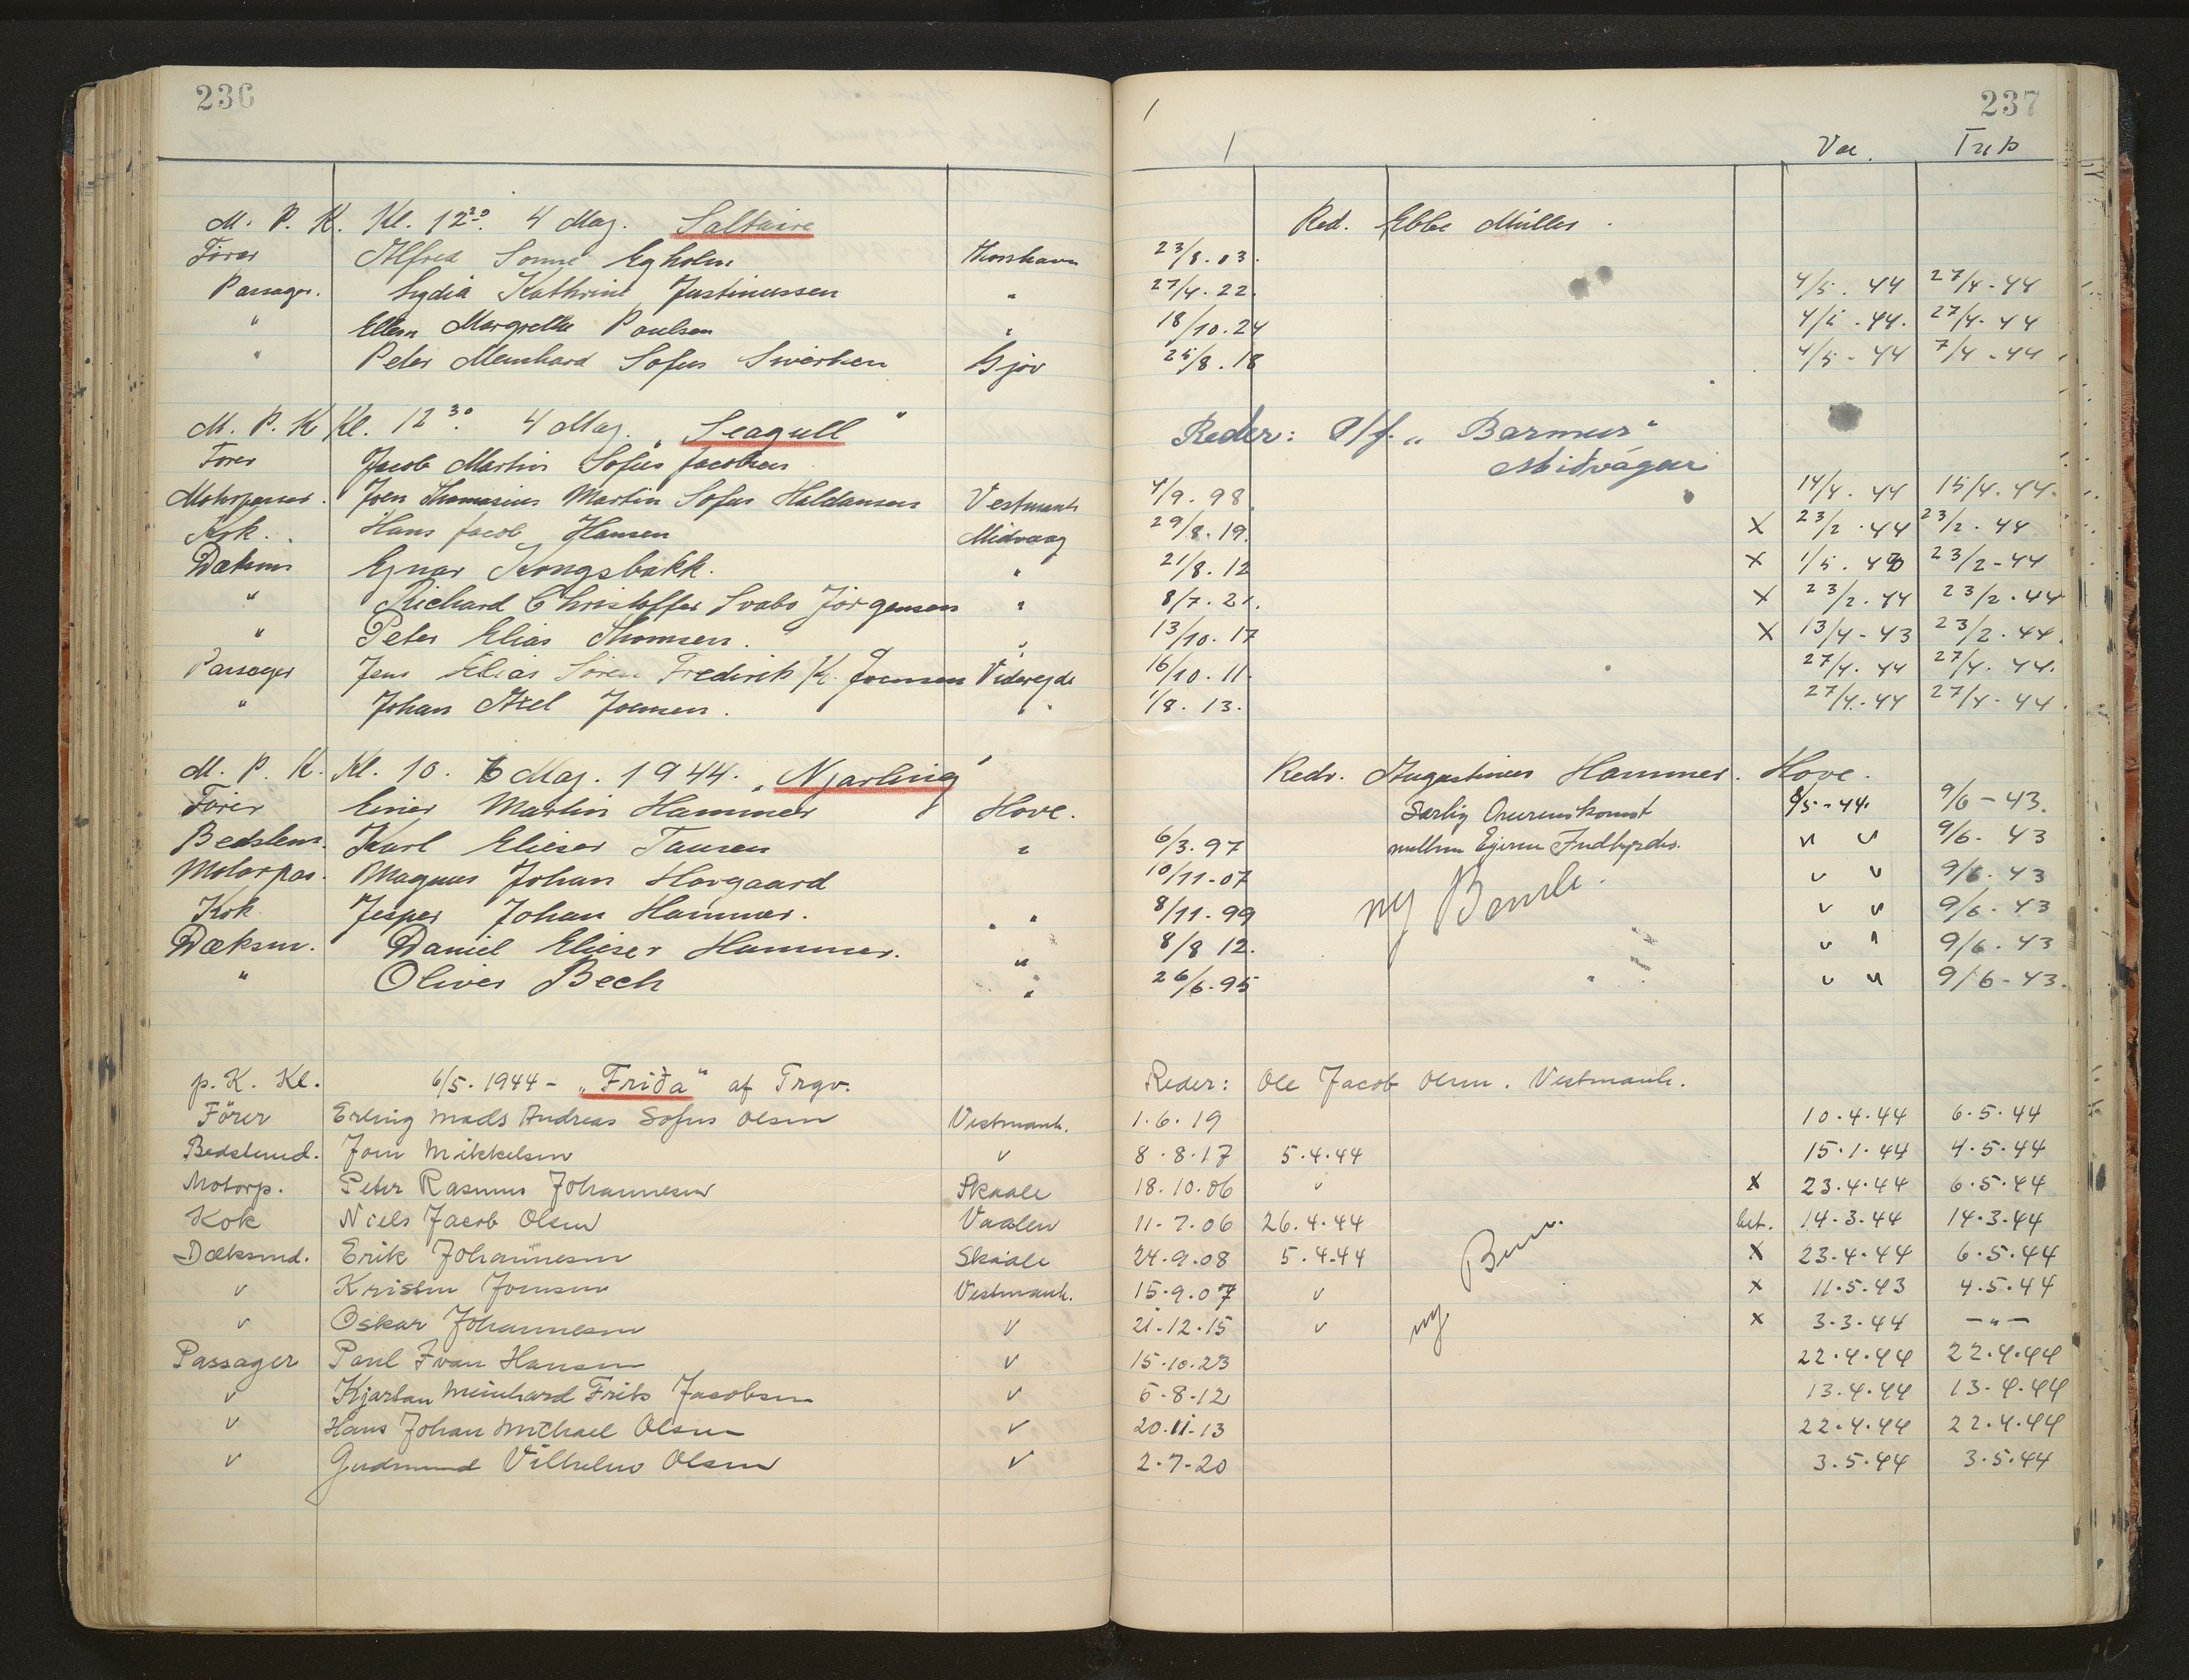 236
237
Vac. Trip
M. P. K. Kl. 12²⁰. 4 Maj. Saltaire Red. Ebbe Müller.
Fører Alfred Sonne Egholm Thorshavn 23/8.03.
Passager. Lydia Kathrine Justinussen " 27/4.22. 4/5.44 27/4-44
" Ellen Margrethe Poulsen " 18/10.24 4/5-44. 27/4.44
" Peter Meinhard Sofus Gjøv 25/8.18 4/5-44 7/4-44
M. P. K Kl. 12³⁰. 4 Maj. „Seagull" Reder: P/f. „Barmur"
Miðvágur
Fører Jacob Martin Sofus Jacobsen
Motorpasser. Joen Thomasius Martin Sofus Haldansen Vestmanh 4/9.98 14/4.44 15/4.44.
Kok. Hans Jacob Hansen Midvaag 29/8.19. X 23/2.44 23/2.44
Dæksm Ejnar Kongsbakk. " 21/8.12 X 1/5.43 23/2-44
" Richard Christoffer Svabo Jörgensen " 8/7.21. X 23/2.44 23/2.44
" Peter Elias Thomsen. " 13/10.17 X 13/4-43 23/2.44.
Passager Jens Elias Søren Frederik K. Joensen Viderejde 16/10.11. 27/4.44 27/4.44.
" Johan Axel Joensen. " 1/8.13. 27/4.44 27/4-44.
M. P. K. Kl. 10. 6 Maj. 1944. „Njarling" Redr. Augustinus Hammer. Hove.
Fører Einer Martin Hammer Hove. Særlig Overenskomst 8/5-44. 9/6-43.
Bedstem. Karl Elieser Tausen " 6/3.97 mellem Ejerne Indbyrdes. " " 9/6-43
Motorpas. Magnus Johan Hovgaard 10/11-07 " " 9/6.43
Kok Jesper Johan Hammer. " 8/11-99 ny Bemh. " " 9/6.43
Dæksm. Daniel Elieser Hammer. " 8/8 12. " " 9/6.43
" Oliver Bech " 26/6.95 " " 9/6-43.
p. K. Kl. 6/5.1944 - „Friða" af Trgv. Reder: Ole Jacob Olsen. Vestmanh.
Förer Erling Mads Andreas Sofus Olsen Vestmanh. 1.6.19 10.4.44 6.5.44
Bedstemd. Joen Mikkelsen v 8.8.17 5.4.44 15.1.44 4.5.44
Motorp. Peter Rasmus Johannesen Skaale 18.10.06 v x 23.4.44 6.5.44
Kok Niels Jacob Olsen Vaalen 11-7.06 26.4.44 bet. 14.3.44 14.3.44
Dæksmd. Erik Johannesen Skaale 24.9.08 5.4.44 x 23.4.44 6.5.44
v Kristen Joensen Vestmanh. 15.9.07 v x 11.5.43 4.5.44
v Oskar Johannesen v 21.12.15 v ny Bem. x 3.3.44 -"-
Passager Paul Ivan Hansen v 15.10.23 22.4.44 22.4.44
v Kjartan Meinhard Frits Jacobsen v 5.8.12 13.4.44 13.4.44
v Hans Johan Michael Olsen v 20.11.13 22.4.44 22.4.44
v Gudmund Vilhelm Olsen v 2.7-20 3.5.44 3.5.44